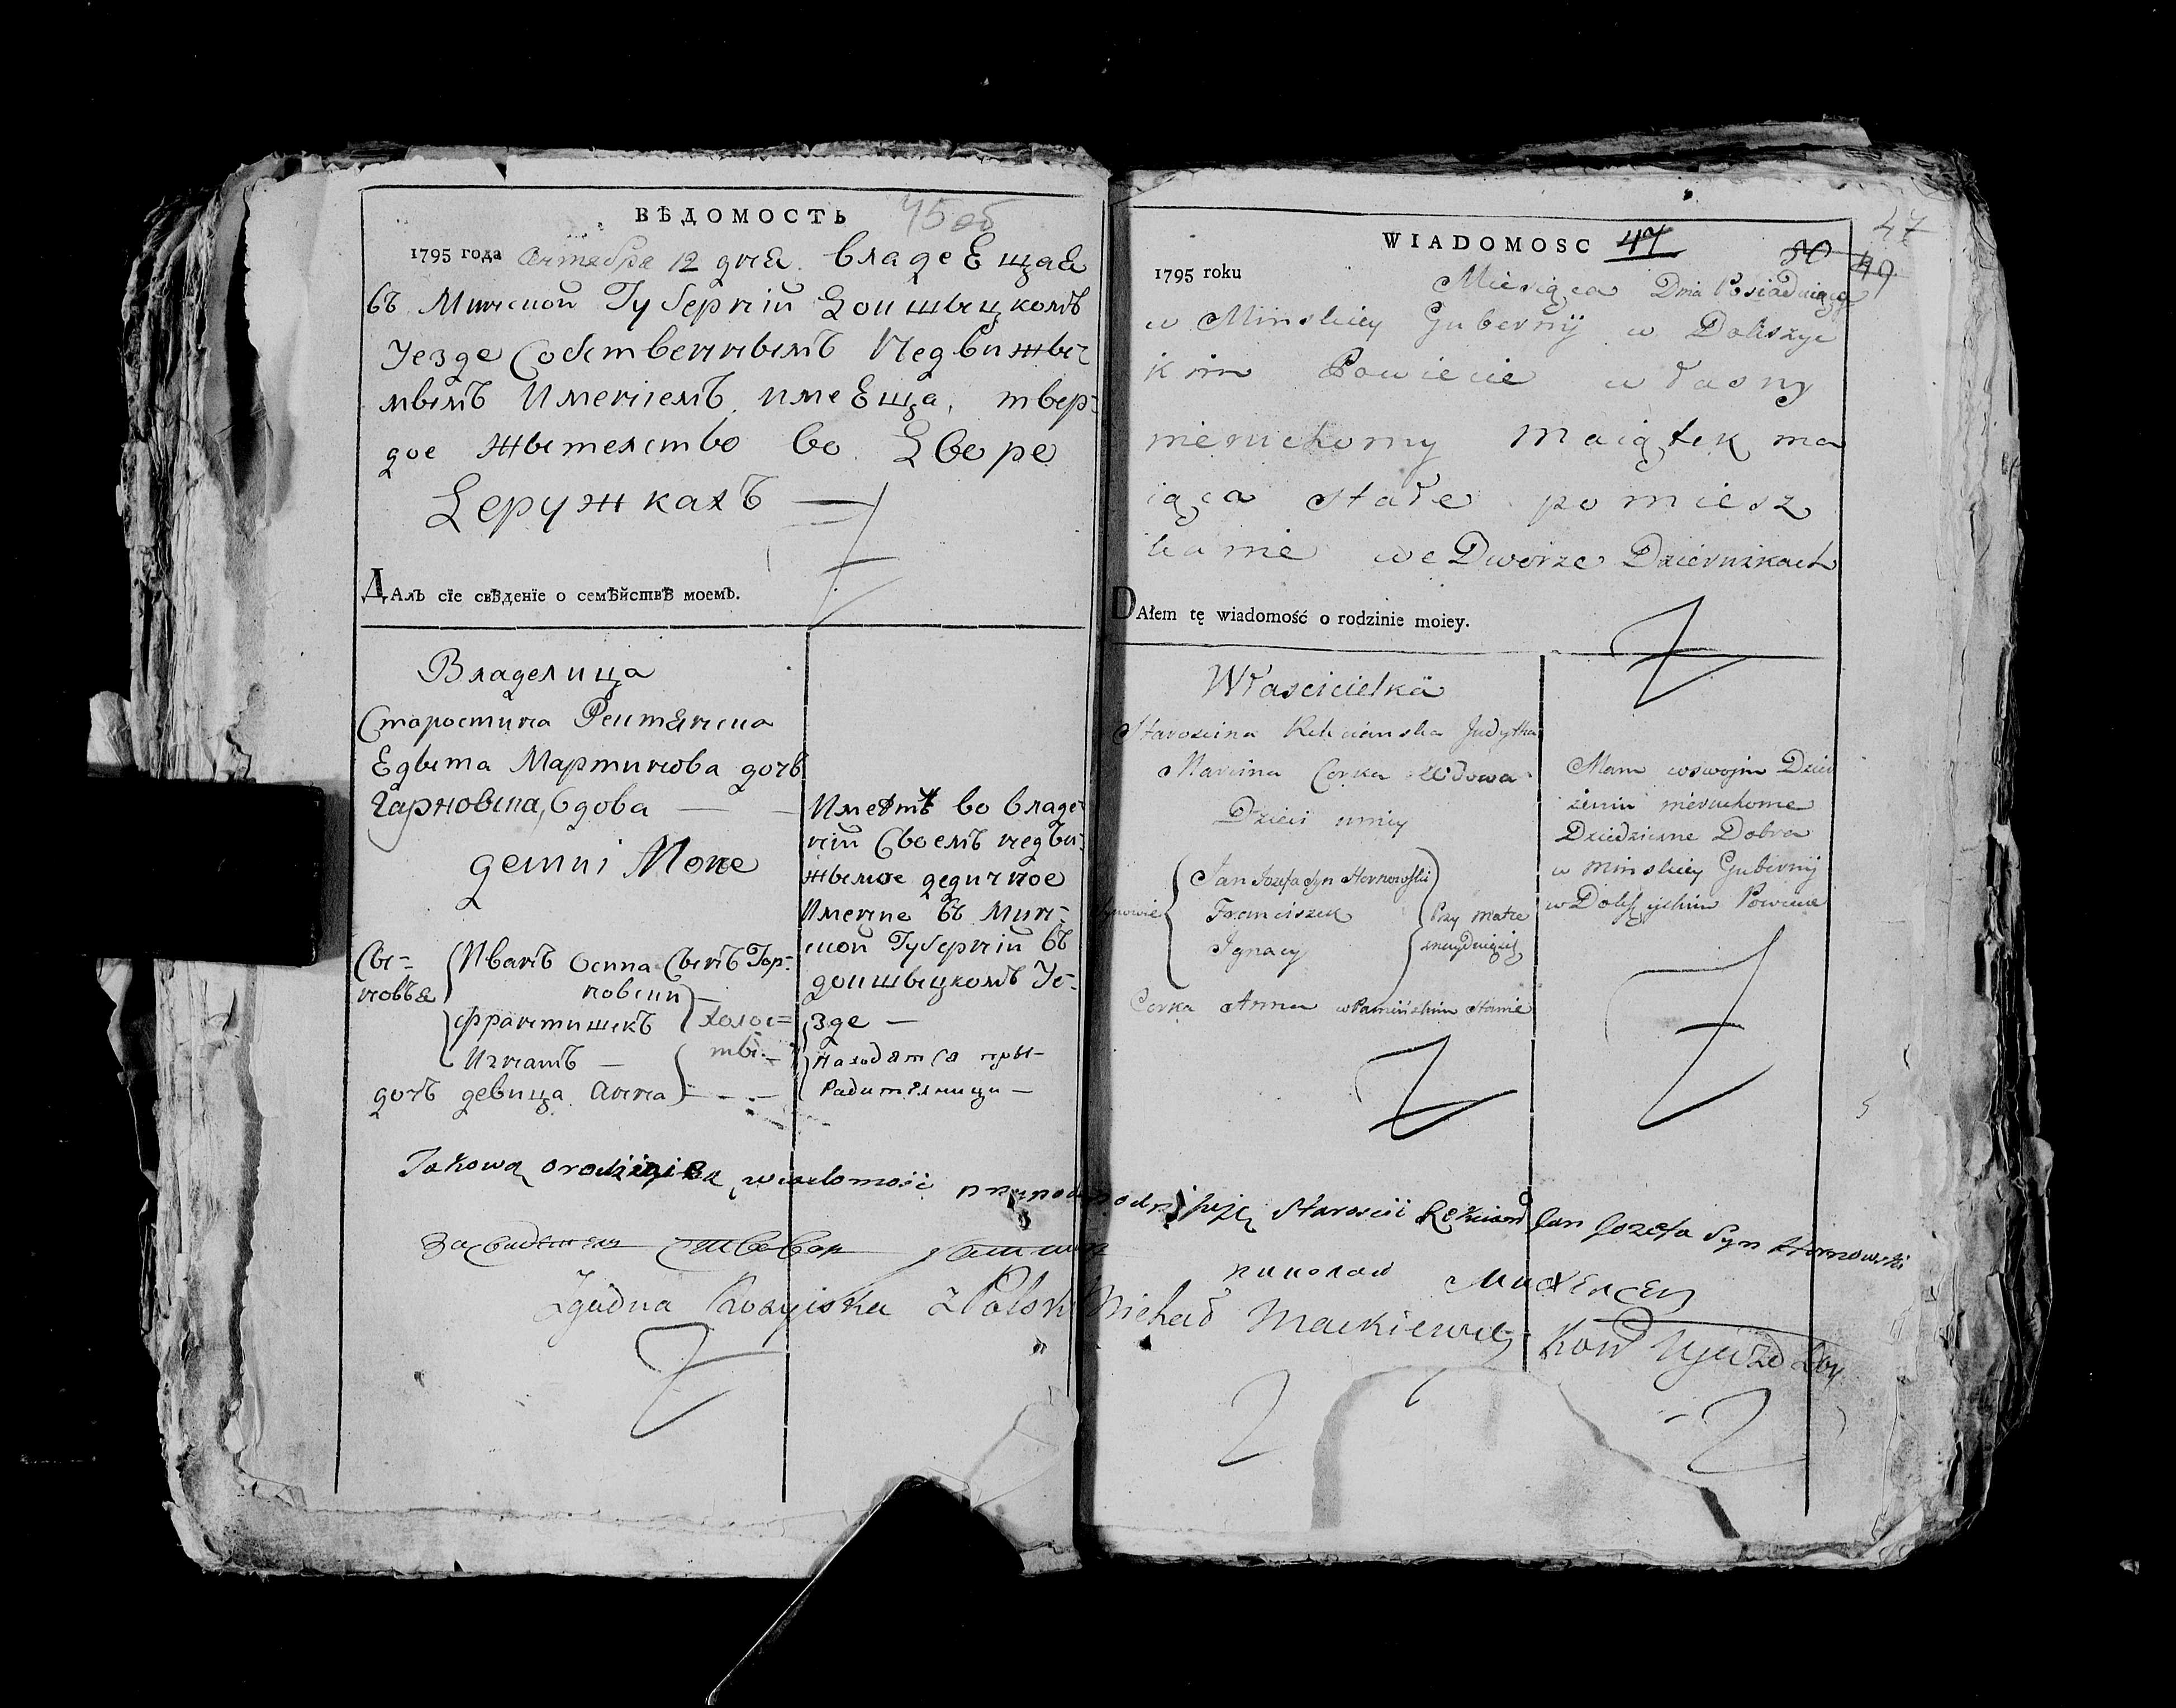 ВѢДОМОСТЬ 45 об
1795 года Октебра 12 днѧ владеЕщаѧ
въ Минскои Губерніи Докшыцкомъ
Уезде Собственнымъ Недвижы-
мымъ Имениемъ имеЕща, твер-
дое жытелство во Дворе
Деружкахъ
ДАлъ сїе свѣденїе о семѣйствѣ моемъ.
Владелица
Старостина
Едыта Мартинова дочъ
вдова
дети Мое
Сы-
новъя
Иванъ Осипа Сынъ Гор-
новски
Франтишекъ
Игнатъ
холос=
ты
дочъ девица Анна
Имеетъ во владе-
нии Своемъ недви-
жымое дедичное
Имение въ Мин-
скои Губернии въ
докшыцкомъ Уе-
зде
находятся пры
Радителници
WIADOMOSC 47 50 49 47
1795 roku Miesiąca Dnia Posiadaiąca
w Minskiey Gubernij w Dokszyc
kim Powiecie własny
nieruchomy maiątek ma
iąca stałe pomiesz
kanie we Dworze Dzierużkach
DAłem tę wiadomość o rodzinie moiey.
Włascicielka
Starościna Judytha
Marcina Corka Wdowa
Dzieci
Synowie
Jan Jozefa Syn Hornowski
Franciszek
Ignacy
Przy Matce
znayduiący
Corka Anna w Panińskim Stanie
Mam w swoim Dzier
żeniu nieruchome
Dziedziczne Dobra
w Minskiey Gubernij
w Dokszyckim Powiecie
Takową o rodzinie wiadomość podpisuię Starościc Jan Jozefa Syn Hornowski
Zgodna Rossyiska z Polsk Michał Mackiewicz